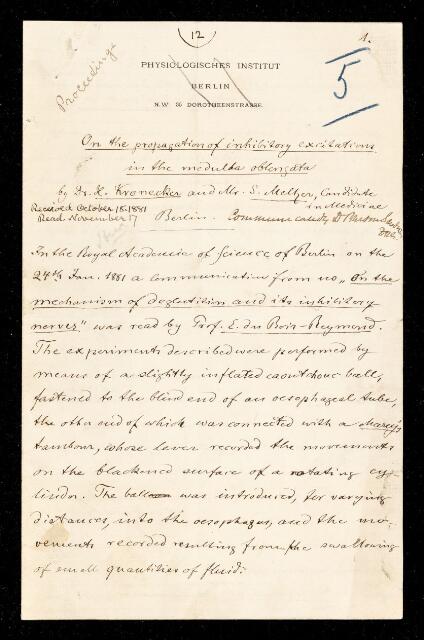 12
1.
Proceedings
5
PHYSIOLOGISCHES INSTITUT
BERLIN
N.W 35 DOROTHEENSTRASSE.
On the propagation of inhibitory excitations
in the medulla oblongata
by Dr. H. Kronecker and Mr. S. Meltzer, Candidate
in Medicine
Received October 18. 1881
Read November 17
Berlin. Communicated by Dr
In the Royal Academie of Science of Berlin on the
24th Jan. 1881 a communication from us „On the
mechanism of deglutition and its inhibitory
nerves" was read by Prof. E. du Bois-Reymond.
The experiments described were performed by
means of a slightly inflated caoutchouc ball,
fastened to the blind end of an oesophageal tube,
the other end of which was connected with a Marey's
tambour, whose lever recorded the movements
on the blackened surface of a rotating cy-
linder. The ball was introduced, for varying
distances, into the oesophagus, and the mo-
vements recorded resulting from the swallowing
of small quantities of fluid.